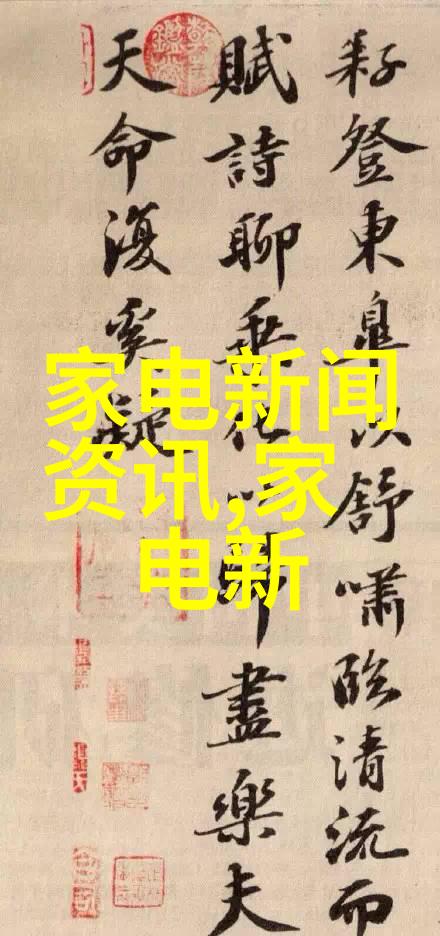 耔登東皐以舒嘯臨清流而
賦詩聊乘化以歸盡樂夫
天命復奚疑
家电新闻
资讯,家
电新